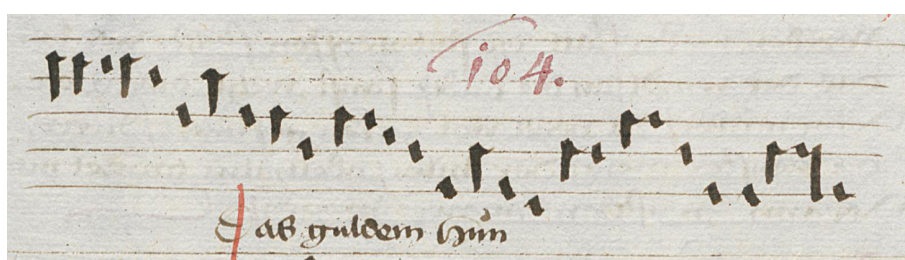 104.
Das guldem hun